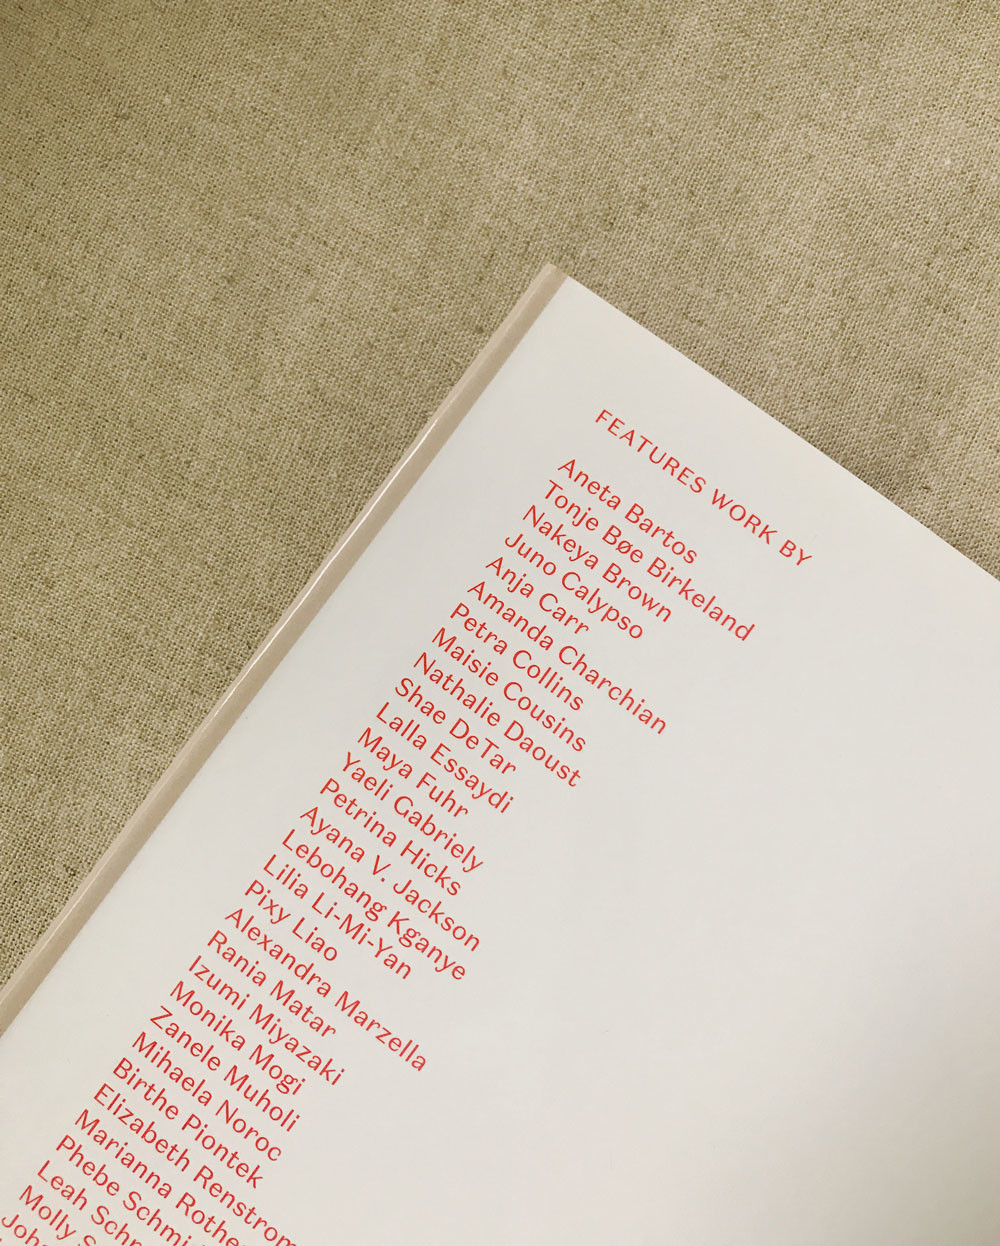 FEATURES WORK BY
Aneta Bartos
Tonje Bøe Birkeland
Nakeya Brown
Juno Calypso
Anja Carr
Amanda Charchian
Petra Collins
Maisie Cousins
Nathalie Daoust
Shae DeTar
Lalla Essaydi
Maya Fuhr
Yaeli Gabriely
Petrina Hicks
Ayana V. Jackson
Lebohang Kganye
Lilia Li-Mi-Yan
Pixy Liao
Alexandra Marzella
Rania Matar
Izumi Miyazaki
Monika Mogi
Zanele Muholi
Mihaela Noroc
Birthe Piontek
Elizabeth Renstrom
Marianna
Phebe
Leah
Molly